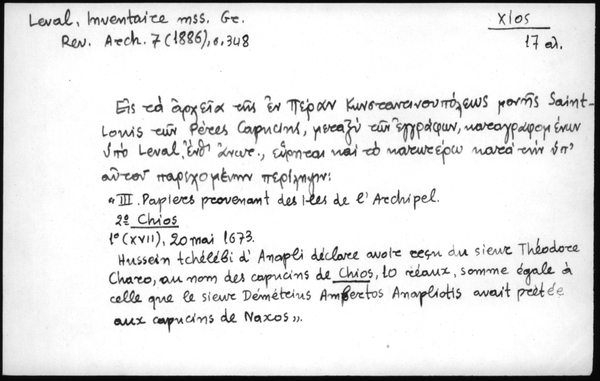 Leval, Inventaire mss. Gr.
Rev. Arch. 7 (1886), σ. 348
Χίος
17 αι.
Εἰς τὰ ἀρχεῖα τῆς ἐν Πέραν Κωνσταντινουπόλεως μονῆς Saint-
Louis τῶν Pères Capucins, μεταξὺ τῶν ἐγγράφων, καταγραφομένων
ὑπὸ Leval, ἔνθ' ἄνωτ., εὕρηται καὶ τὸ κατωτέρω κατὰ τὴν ὑπ'
αὐτοῦ παρεχομένην περίληψιν:
"III. Papiers provenant des îles de l'Archipel.
2º Chios
1º (XVII), 20 mai 1673.
Hussein tchélébi d'Anapli déclare avoir reçu du sieur Théodore
Charo, au nom des capucins de Chios, 10 réaux, somme égale à
celle que le sieur Démétrius Ambertos Anapliotis avait prêtée
aux capucins de Naxos".